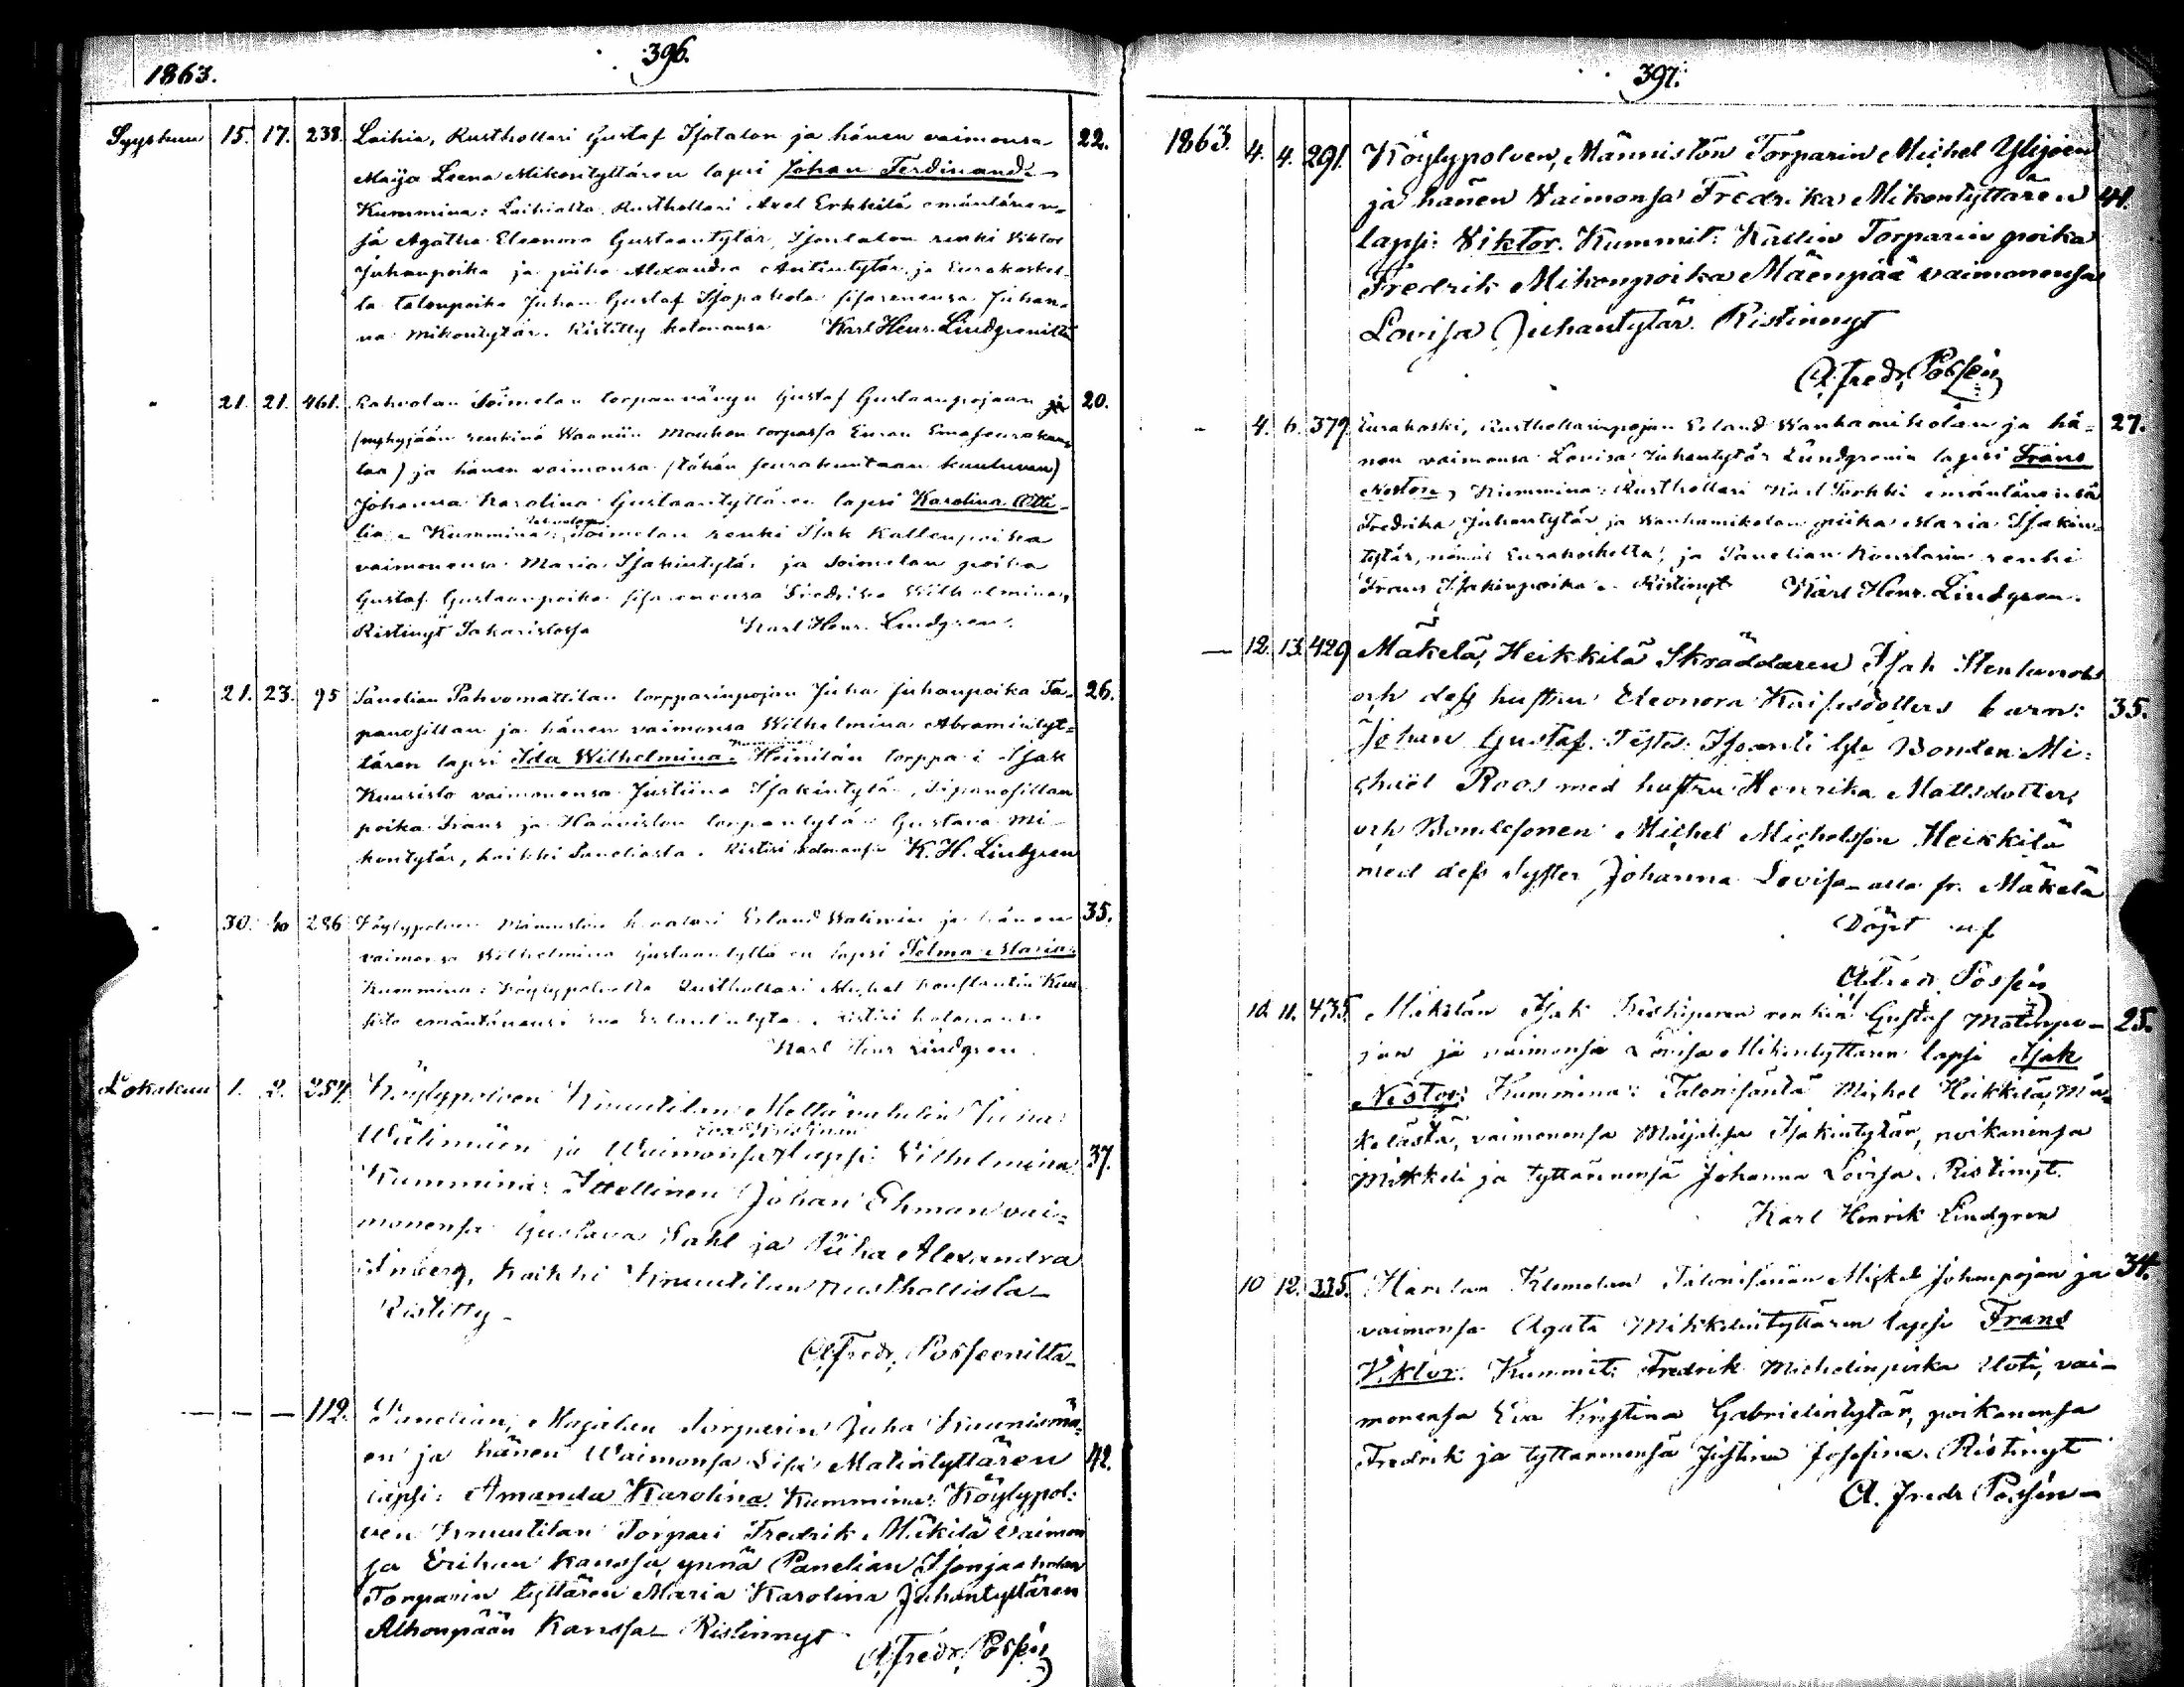 396.
1863.
Syyskuu 15. 17. 238. Laihia, Rusthollari Gustaf Isotalon ja hänen vaimonsa 22.
Maija Leena Mikontyttären lapsi Johan Ferdinand.
Kummina: Laihialta Rusthollari Axel Erkkilä emäntänen-
sä Agatha Eleonora Gustaantytär, Isontalon renki Viktor
Juhanpoika ja piika Alexandra Antintytär ja Eurakoskel-
ta talonpoika Juhan Gustaf Isopahola sisarenensa Juhan-
na Mikontytär. Ristitty kotonansa Karl Henr. Lindgreniltä
" 21. 21. 461. Rahvolan Soimelan torpan vävyn Gustaf Gustaanpojaan ja 20.
(nykyjään renkinä Waaniin Mouhen torpassa Euran Emäseurakun-
taa) ja hänen vaimonsa (tähän seurakuntaan kuuluvan)
Johanna Karolina Gustaantyttären lapsi Karolina Otti-
lia. Kummina: Soimelan renki Isak Kallenpoika
vaimonensa Maria Isakintytär ja Soimelan poika
Gustaf Gustaanpoika sisarenensa Fredrika Wilhelmina,
Ristinyt Sakaristossa Karl Henr. Lindgren.
" 21. 23. 95 Panelian Pahvomattilan torpparinpojan Juha Juhanpoika Ta- 26.
panosillan ja hänen vaimonsa Wilhelmina Abramintyt-
tären lapsi Ida Wilhelmina. Kummina: Heinilän torppari Isak
Kuusisto vaimonensa Justiina Isakintytär, Tapanosillan
poika Frans ja Haaviston torpantytär Gustava Mi-
kontytär, kaikki Paneliasta. Ristisi kotonansa K. H. Lindgren
" 30. 286 Köylypolven Männistön Erland Walinin ja hänen 35.
vaimonsa Wilhelmina Gustaantyttären lapsi Selma Maria.
Kummina: Köylypolvelta Rusthollari Michel Konstantin Kuu-
sisto emäntänensä Eva Erlandintytär. Ristisi kotonansa
Karl Henr Lindgren.
Lokakuu 1. 2. 257. Köylypolven Knuutilan Mettävahdin Juha
Wälimäen ja Waimonsa Eva Kristinan lapsi: Vilhelmina 37.
Kummina: Itellinen Johan Ehman vai-
monensa Gustava Dahl ja Piika Alexandra
kaikki Knuutilan rusthollista
Ristitty
A. Fredr. Posseenilta
— — — 112. Panelian, Majalan Torparin Juha Kaunismä-
en ja hänen Waimonsa Lisa Matintyttären 42.
lapsi: Amanda Karolina. Kummina: Köylypol-
ven Knuutilan Torpari Fredrik Mäkilä Vaimon
sa Erikan kanssa, ynnä Panelian Isonjaakolan
Torparin tyttären Maria Karolina Juhantyttären
Alhonpään kanssa Ristinnyt
A. Fredr. Possén
397.
1863. 4. 4. 291. Köylypolven, Männistön Torparin Michel Ylijoen
ja hänen Vaimonsa Fredrika Mikontyttären 44.
lapsi: Viktor. Kummit: Kallin Torparin poika
Fredrik Mikonpoika Mäenpää vaimonensa
Lovisa Juhantytär. Ristinnyt
A. Fredr. Possén
" 4. 6. 379. Eurakoski, Rusthollarinpojan Erland Wanhamikolan ja hä- 27.
nen vaimonsa Lovisa Juhantytär Lundgrenin lapsi Frans
Nestor, Kummina: Rusthollari Karl Torkki emäntänensä
Fredrika Juhantytär ja Wanhamikolan piika Maria Isakin-
tytär, nämät Eurakoskelta, ja Panelian Konstarin renki
Frans Isakinpoika. Ristinyt Karl Henr. Lindgren.
— 12. 13. 429 Mäkelä, Heikkilä Skräddaren Isak Stenlunds
och dess hustru Eleonora Kaisasdotters barn: 35.
Johan Gustaf. Test: Bonden Mi-
chiël Roos med hustru Henrika Mattsdotter,
och Bondesonen Michel Michelsson Heikkilä
med dess Syster Johanna Lovisa alla fr. Mäkelä
Döpt af
A. Fredr. Possén
10. 11. 435. Mäkilän Isak renkin Gustaf Matinpo- 25.
jan ja vaimonsa Lovisa Mikintyttären lapsi Isak
Nestor: Kummina: Talonisäntä Michel Heikkilä, Mä-
kelästä, vaimonensa Maijalisa Isakintytär, poikanensa
Mikkeli ja tyttärinensä Johanna Lovisa. Ristinyt.
Karl Henrik Lindgren
10 12. 335. Harolan Klemolan Talonisännän Mickel Johanpojan ja 34.
vaimonsa Agata Mikkelintyttären lapsi Frans
Viktor. Kummit: Fredrik Michelinpoika Uoti, vai-
monensa Eva Kristina Gabrielintytär, poikanensa
Fredrik ja tyttärinensä Justina Josefina. Ristinyt
A. Fredr Possén